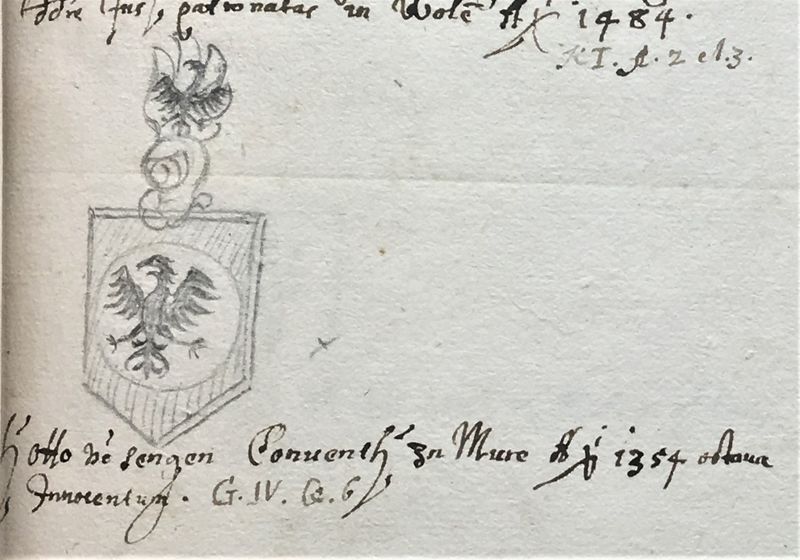 Jus patronatus in Wolē Aō 1484.
K I. A. 2 et. 3.
H' Otto vō Sengen Conuenth' zu Mure Aō 1354 octaua
Innocentum. G. IV. Q. 6